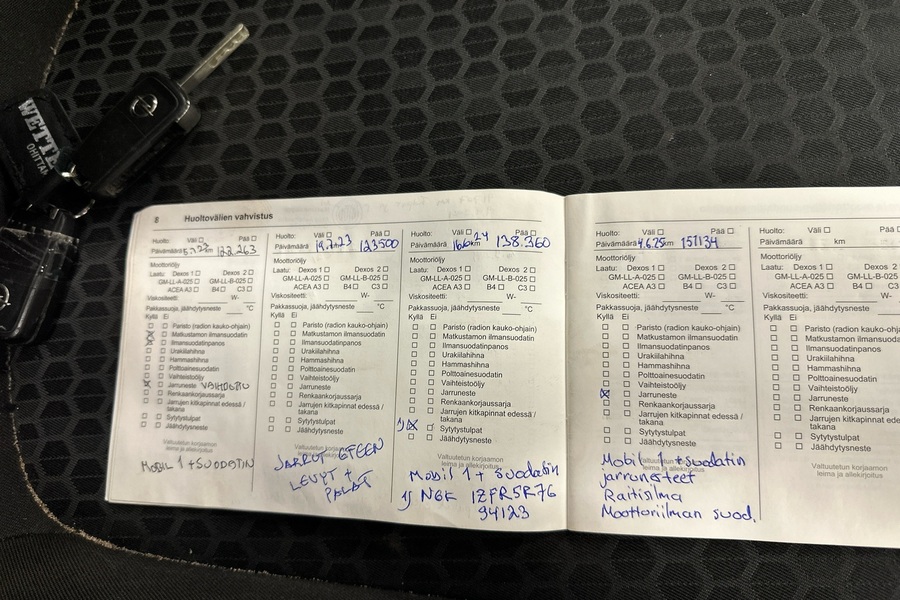 WETTE
OHITTA
8 Huoltovälien vahvistus
Huolto: Väli Pää
Päivämäärä km 122.263
Moottoriöljy
Laatu: Dexos 1 Dexos 2
GM-LL-A-025 GM-LL-B-025
ACEA A3 B4 C3
Viskositeetti: W-
Pakkassuoja, jäähdytysneste °C
Kyllä Ei
Paristo (radion kauko-ohjain)
Matkustamon ilmansuodatin
Ilmansuodatinpanos
Urakiilahihna
Hammashihna
Polttoainesuodatin
Vaihteistoöljy
Jarruneste VAIHDETTU
Renkaankorjaussarja
Jarrujen kitkapinnat edessä /
takana
Sytytystulpat
Jäähdytysneste
Valtuutetun korjaamon
leima ja allekirjoitus
MOBIL 1 + SUODATIN
Huolto: Väli Pää
Päivämäärä 19.7.23 123500
Moottoriöljy
Laatu: Dexos 1 Dexos 2
GM-LL-A-025 GM-LL-B-025
ACEA A3 B4 C3
Viskositeetti: W-
Pakkassuoja, jäähdytysneste °C
Kyllä Ei
Paristo (radion kauko-ohjain)
Matkustamon ilmansuodatin
Ilmansuodatinpanos
Urakiilahihna
Hammashihna
Polttoainesuodatin
Vaihteistoöljy
Jarruneste
Renkaankorjaussarja
Jarrujen kitkapinnat edessä /
takana
Sytytystulpat
Jäähdytysneste
Valtuutetun korjaamon
leima ja allekirjoitus
JARRUT ETEEN
LEVYT +
PALAT
Huolto: Väli Pää
Päivämäärä 16.6.24 km 138.360
Moottoriöljy
Laatu: Dexos 1 Dexos 2
GM-LL-A-025 GM-LL-B-025
ACEA A3 B4 C3
Viskositeetti: W-
Pakkassuoja, jäähdytysneste °C
Kyllä Ei
Paristo (radion kauko-ohjain)
Matkustamon ilmansuodatin
Ilmansuodatinpanos
Urakiilahihna
Hammashihna
Polttoainesuodatin
Vaihteistoöljy
Jarruneste
Renkaankorjaussarja
Jarrujen kitkapinnat edessä /
takana
1) Sytytystulpat
Jäähdytysneste
Valtuutetun korjaamon
leima ja allekirjoitus
Mobil 1 + suodatin
1) NGK IZFR5K76
94123
Huolto: Väli Pää
Päivämäärä 4.6.25 km 151134
Moottoriöljy
Laatu: Dexos 1 Dexos 2
GM-LL-A-025 GM-LL-B-025
ACEA A3 B4 C3
Viskositeetti: W-
Pakkassuoja, jäähdytysneste °C
Kyllä Ei
Paristo (radion kauko-ohjain)
Matkustamon ilmansuodatin
Ilmansuodatinpanos
Urakiilahihna
Hammashihna
Polttoainesuodatin
Vaihteistoöljy
Jarruneste
Renkaankorjaussarja
Jarrujen kitkapinnat edessä /
takana
Sytytystulpat
Jäähdytysneste
Valtuutetun korjaamon
leima ja allekirjoitus
Mobil 1 + suodatin
jarrunesteet
Raitisilma
Moottoriilman suod.
Huolto: Väli Pää
Päivämäärä km
Moottoriöljy
Laatu: Dexos 1 Dexos 2
GM-LL-A-025 GM-LL-B-025
ACEA A3 B4 C3
Viskositeetti: W-
Pakkassuoja, jäähdytysneste
Kyllä Ei
Paristo (radion kauko-ohjain)
Matkustamon ilmansuodatin
Ilmansuodatinpanos
Urakiilahihna
Hammashihna
Polttoainesuodatin
Vaihteistoöljy
Jarruneste
Renkaankorjaussarja
Jarrujen kitkapinnat edessä /
takana
Sytytystulpat
Jäähdytysneste
Valtuutetun korjaamon
leima ja allekirjoitus